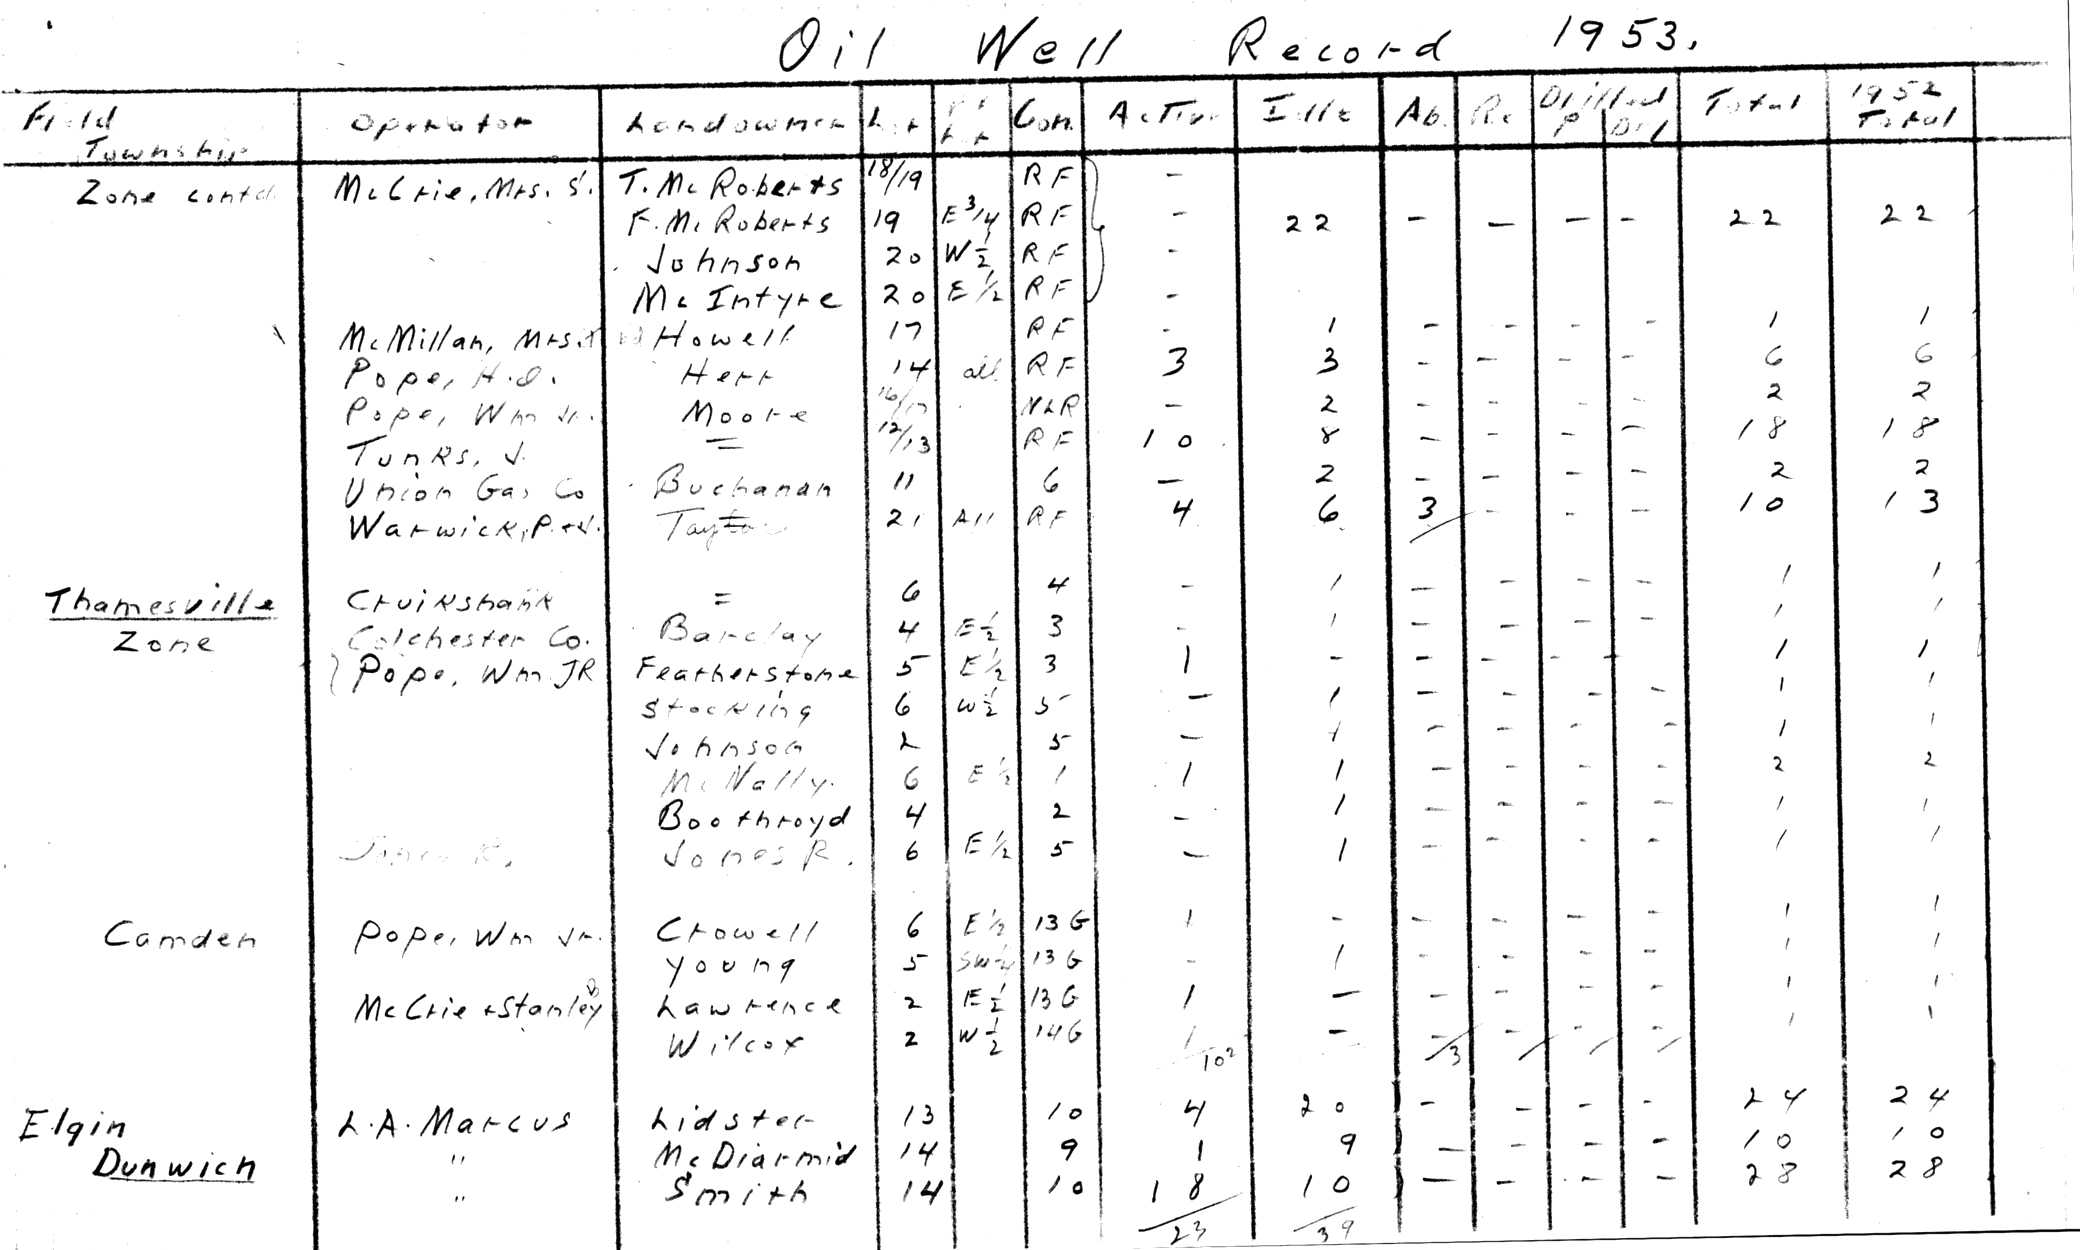 Oil Well Record 1953.
Field Township Operator Landowner Lot Pt Lot Con. Active Idle Ab. Re Drilled P Dry Total 1952 Total
Zone contd McCrie, Mrs. S. T. McRoberts 18/19 RF -
F. McRoberts 19 E 3/4 RF - 22 - - - - 22 22
Johnson 20 W 1/2 RF -
McIntyre 20 E 1/2 RF -
McMillan, Mrs. Howell 17 RF - 1 - - - - 1 1
Pope, H.O. Herr 14 all RF 3 3 - - - - 6 6
Pope, Wm Jr. Moore 16/17 NLR - 2 - - - - 2 2
Tunks, J. = 12/13 RF 10 8 - - - - 18 18
Union Gas Co Buchanan 11 6 - 2 - - - - 2 2
Warwick, P. + J. Taylor 21 All RF 4 6 3 - - - 10 13
Thamesville Cruikshank = 6 4 - 1 - - - - 1 1
Zone Colchester Co. Barclay 4 E 1/2 3 - 1 - - - - 1 1
Pope, Wm JR Featherstone 5 E 1/2 3 1 - - - - - 1 1
Stocking 6 W 1/2 5 - 1 - - - - 1 1
Johnson 2 5 - 1 - - - - 1 1
McNally. 6 E 1/2 1 1 1 - - - - 2 2
Boothroyd 4 2 - 1 - - - - 1 1
Jones R. Jones R. 6 E 1/2 5 - 1 - - - - 1 1
Camden Pope, Wm Jr. Crowell 6 E 1/2 13 G 1 - - - - - 1 1
Young 5 SW 1/4 13 G - 1 - - - - 1 1
McCrie + Stanley Lawrence 2 E 1/2 13 G 1 - - - - - 1 1
Wilcox 2 W 1/2 14 G 1 - - - - - 1 1
102 3
Elgin L.A. Marcus Lidster 13 10 4 20 - - - - 24 24
Dunwich " McDiarmid 14 9 1 9 - - - - 10 10
" Smith 14 10 18 10 - - - - 28 28
23 39